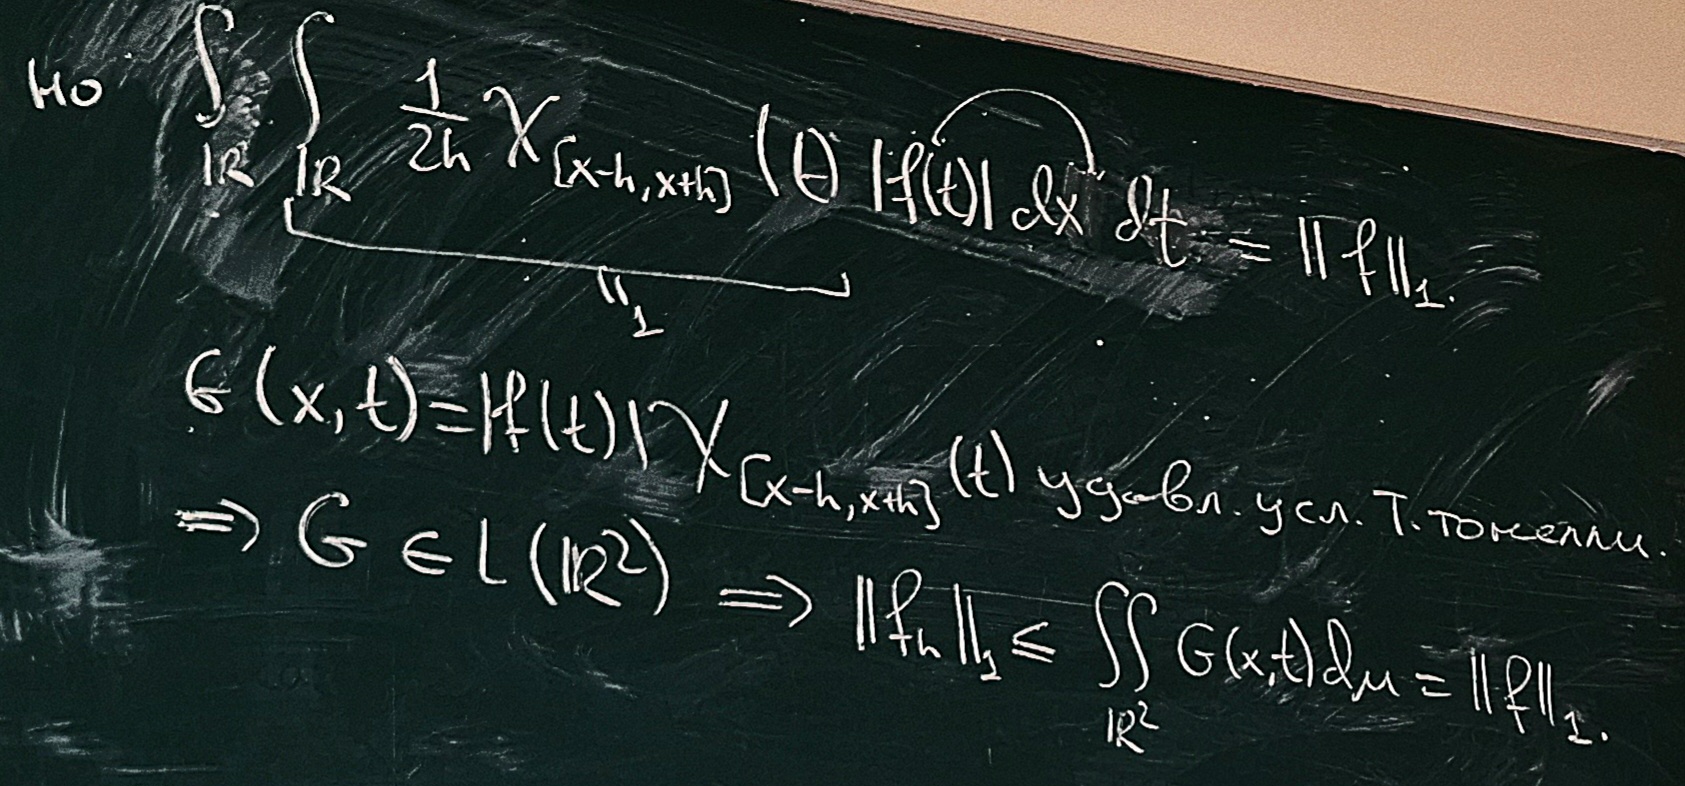 но ∫_ℝ ∫_ℝ 1/2h χ_[x-h,x+h] (t) |f(t)| dx dt = ||f||₁.
"1
G(x,t)=|f(t)| χ_[x-h,x+h] (t) удовл. усл. Т. Тонелли.
⇒ G ∈ L(ℝ²) ⇒ ||f_h||₁ ≤ ∬_ℝ² G(x,t)dμ = ||f||₁.